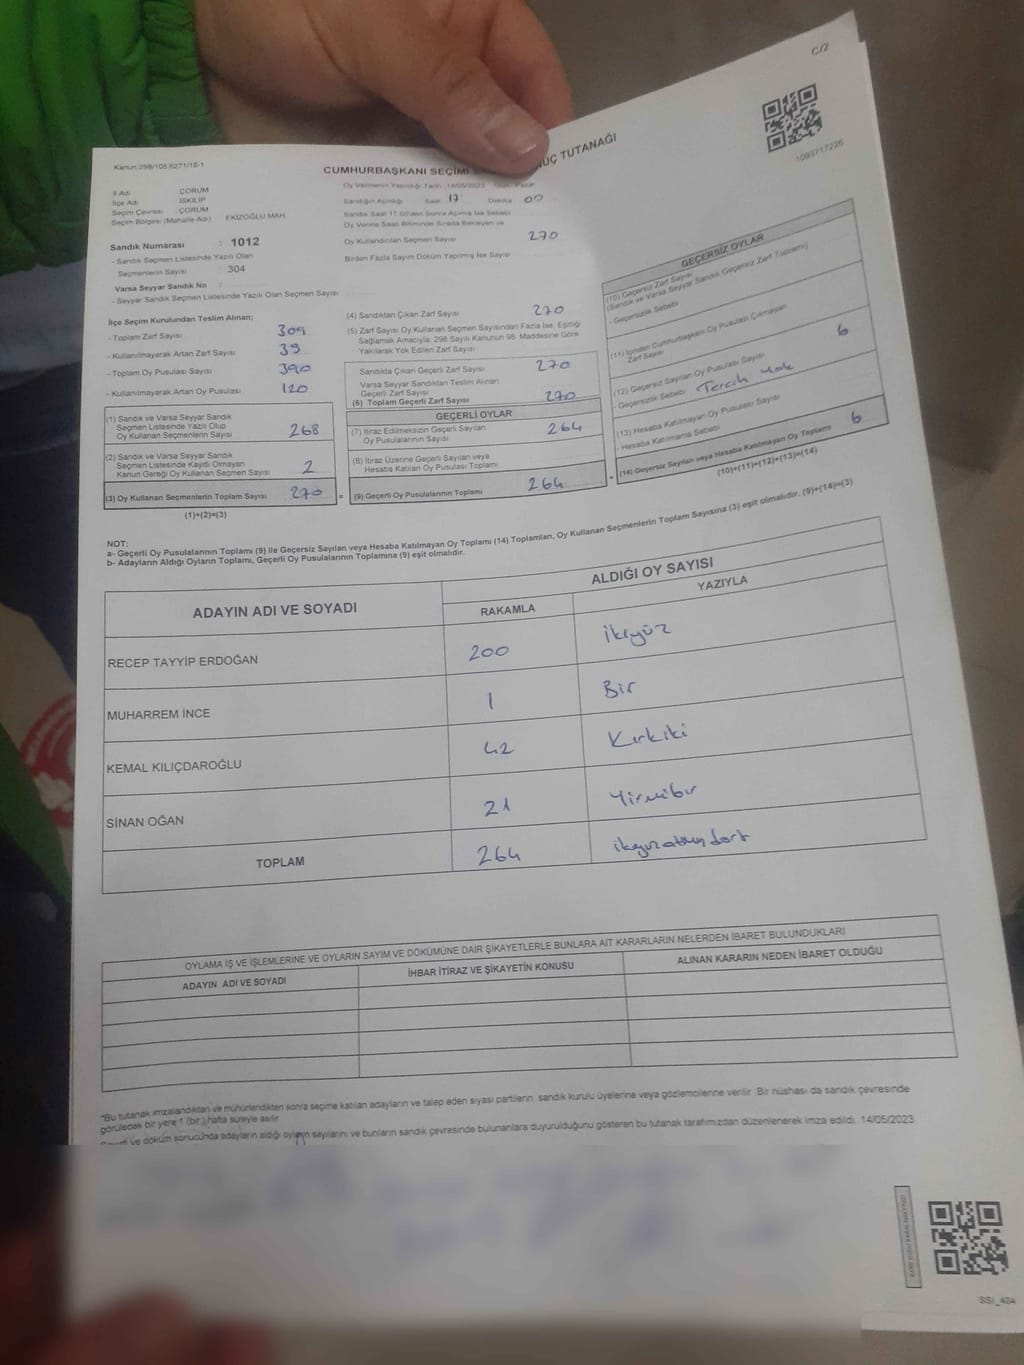 C/2
Kanun:298/105;6271/15-1
CUMHURBAŞKANI SEÇİMİ
UÇ TUTANAĞI
1093717226
İl Adı : ÇORUM
İlçe Adı : İSKİLİP
Seçim Çevresi : ÇORUM
Seçim Bölgesi (Mahalle Adı) : EKİZOĞLU MAH.
Sandık Numarası : 1012
- Sandık Seçmen Listesinde Yazılı Olan
Seçmenlerin Sayısı : 304
Varsa Seyyar Sandık No :
- Seyyar Sandık Seçmen Listesinde Yazılı Olan Seçmen Sayısı
Oy Vermenin Yapıldığı Tarih : 14/05/2023 Gün : Pazar
Sandığın Açıldığı Saat 17 Dakika 00
Sandık Saat 17.00'den Sonra Açılmış İse Sebebi
Oy Verme Saati Bitiminde Sırada Bekleyen ve
Oy Kullandırılan Seçmen Sayısı 270
Birden Fazla Sayım Döküm Yapılmış İse Sayısı
İlçe Seçim Kurulundan Teslim Alınan;
- Toplam Zarf Sayısı 309
- Kullanılmayarak Artan Zarf Sayısı 39
- Toplam Oy Pusulası Sayısı 390
- Kullanılmayarak Artan Oy Pusulası 120
(1) Sandık ve Varsa Seyyar Sandık
Seçmen Listesinde Yazılı Olup
Oy Kullanan Seçmenlerin Sayısı 268
(2) Sandık ve Varsa Seyyar Sandık
Seçmen Listesinde Kayıtlı Olmayan
Kanun Gereği Oy Kullanan Seçmen Sayısı 2
(3) Oy Kullanan Seçmenlerin Toplam Sayısı 270 =
(1)+(2)=(3)
(4) Sandıktan Çıkan Zarf Sayısı 270
(5) Zarf Sayısı Oy Kullanan Seçmen Sayısından Fazla İse, Eşitliği
Sağlamak Amacıyla; 298 Sayılı Kanunun 98. Maddesine Göre
Yakılarak Yok Edilen Zarf Sayısı
Sandıkta Çıkan Geçerli Zarf Sayısı 270
Varsa Seyyar Sandıktan Teslim Alınan
Geçerli Zarf Sayısı
(6) Toplam Geçerli Zarf Sayısı 270
GEÇERLİ OYLAR
(7) İtiraz Edilmeksizin Geçerli Sayılan
Oy Pusulalarının Sayısı 264
(8) İtiraz Üzerine Geçerli Sayılan veya
Hesaba Katılan Oy Pusulası Toplamı
(9) Geçerli Oy Pusulalarının Toplamı 264 +
GEÇERSİZ OYLAR
(10) Geçersiz Zarf Sayısı
(Sandık ve Varsa Seyyar Sandık Geçersiz Zarf Toplamı)
- Geçersizlik Sebebi
(11) İçinden Cumhurbaşkanı Oy Pusulası Çıkmayan
Zarf Sayısı
(12) Geçersiz Sayılan Oy Pusulası Sayısı 6
- Geçersizlik Sebebi Tercih Yok
(13) Hesaba Katılmayan Oy Pusulası Sayısı
- Hesaba Katılmama Sebebi
(14) Geçersiz Sayılan veya Hesaba Katılmayan Oy Toplamı 6
(10)+(11)+(12)+(13)=(14)
NOT:
a- Geçerli Oy Pusulalarının Toplamı (9) ile Geçersiz Sayılan veya Hesaba Katılmayan Oy Toplamı (14) Toplamları, Oy Kullanan Seçmenlerin Toplam Sayısına (3) eşit olmalıdır. (9)+(14)=(3)
b- Adayların Aldığı Oyların Toplamı, Geçerli Oy Pusulalarının Toplamına (9) eşit olmalıdır.
ADAYIN ADI VE SOYADI
ALDIĞI OY SAYISI
RAKAMLA YAZIYLA
RECEP TAYYİP ERDOĞAN 200 ikiyüz
MUHARREM İNCE 1 Bir
KEMAL KILIÇDAROĞLU 42 Kırkiki
SİNAN OĞAN 21 Yirmibir
TOPLAM 264 ikiyüzaltmışdört
OYLAMA İŞ VE İŞLEMLERİNE VE OYLARIN SAYIM VE DÖKÜMÜNE DAİR ŞİKAYETLERLE BUNLARA AİT KARARLARIN NELERDEN İBARET BULUNDUKLARI
ADAYIN ADI VE SOYADI İHBAR İTİRAZ VE ŞİKAYETİN KONUSU ALINAN KARARIN NEDEN İBARET OLDUĞU
*Bu tutanak imzalandıktan ve mühürlendikten sonra seçime katılan adayların ve talep eden siyasi partilerin, sandık kurulu üyelerine veya gözlemcilerine verilir. Bir nüshası da sandık çevresinde
görülecek bir yere 1 (bir) hafta süreyle asılır.
ve döküm sonucunda adayların aldığı oyların sayılarını ve bunların sandık çevresinde bulunanlara duyurulduğunu gösteren bu tutanak tarafımızdan düzenlenerek imza edildi. 14/05/2023
SSI_404